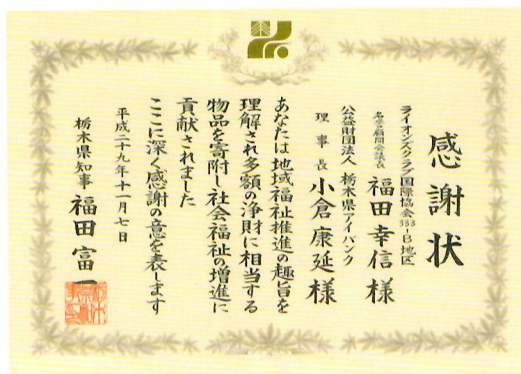 感謝状
ライオンズクラブ国際協会333-B地区
名誉顧問会議長 福田幸信様
公益財団法人 栃木県アイバンク
理事長 小倉康延様
あなたは地域福祉推進の趣旨を
理解され多額の浄財に相当する
物品を寄附し社会福祉の増進に
貢献されました
ここに深く感謝の意を表します
平成二十九年十一月七日
栃木県知事 福田富一